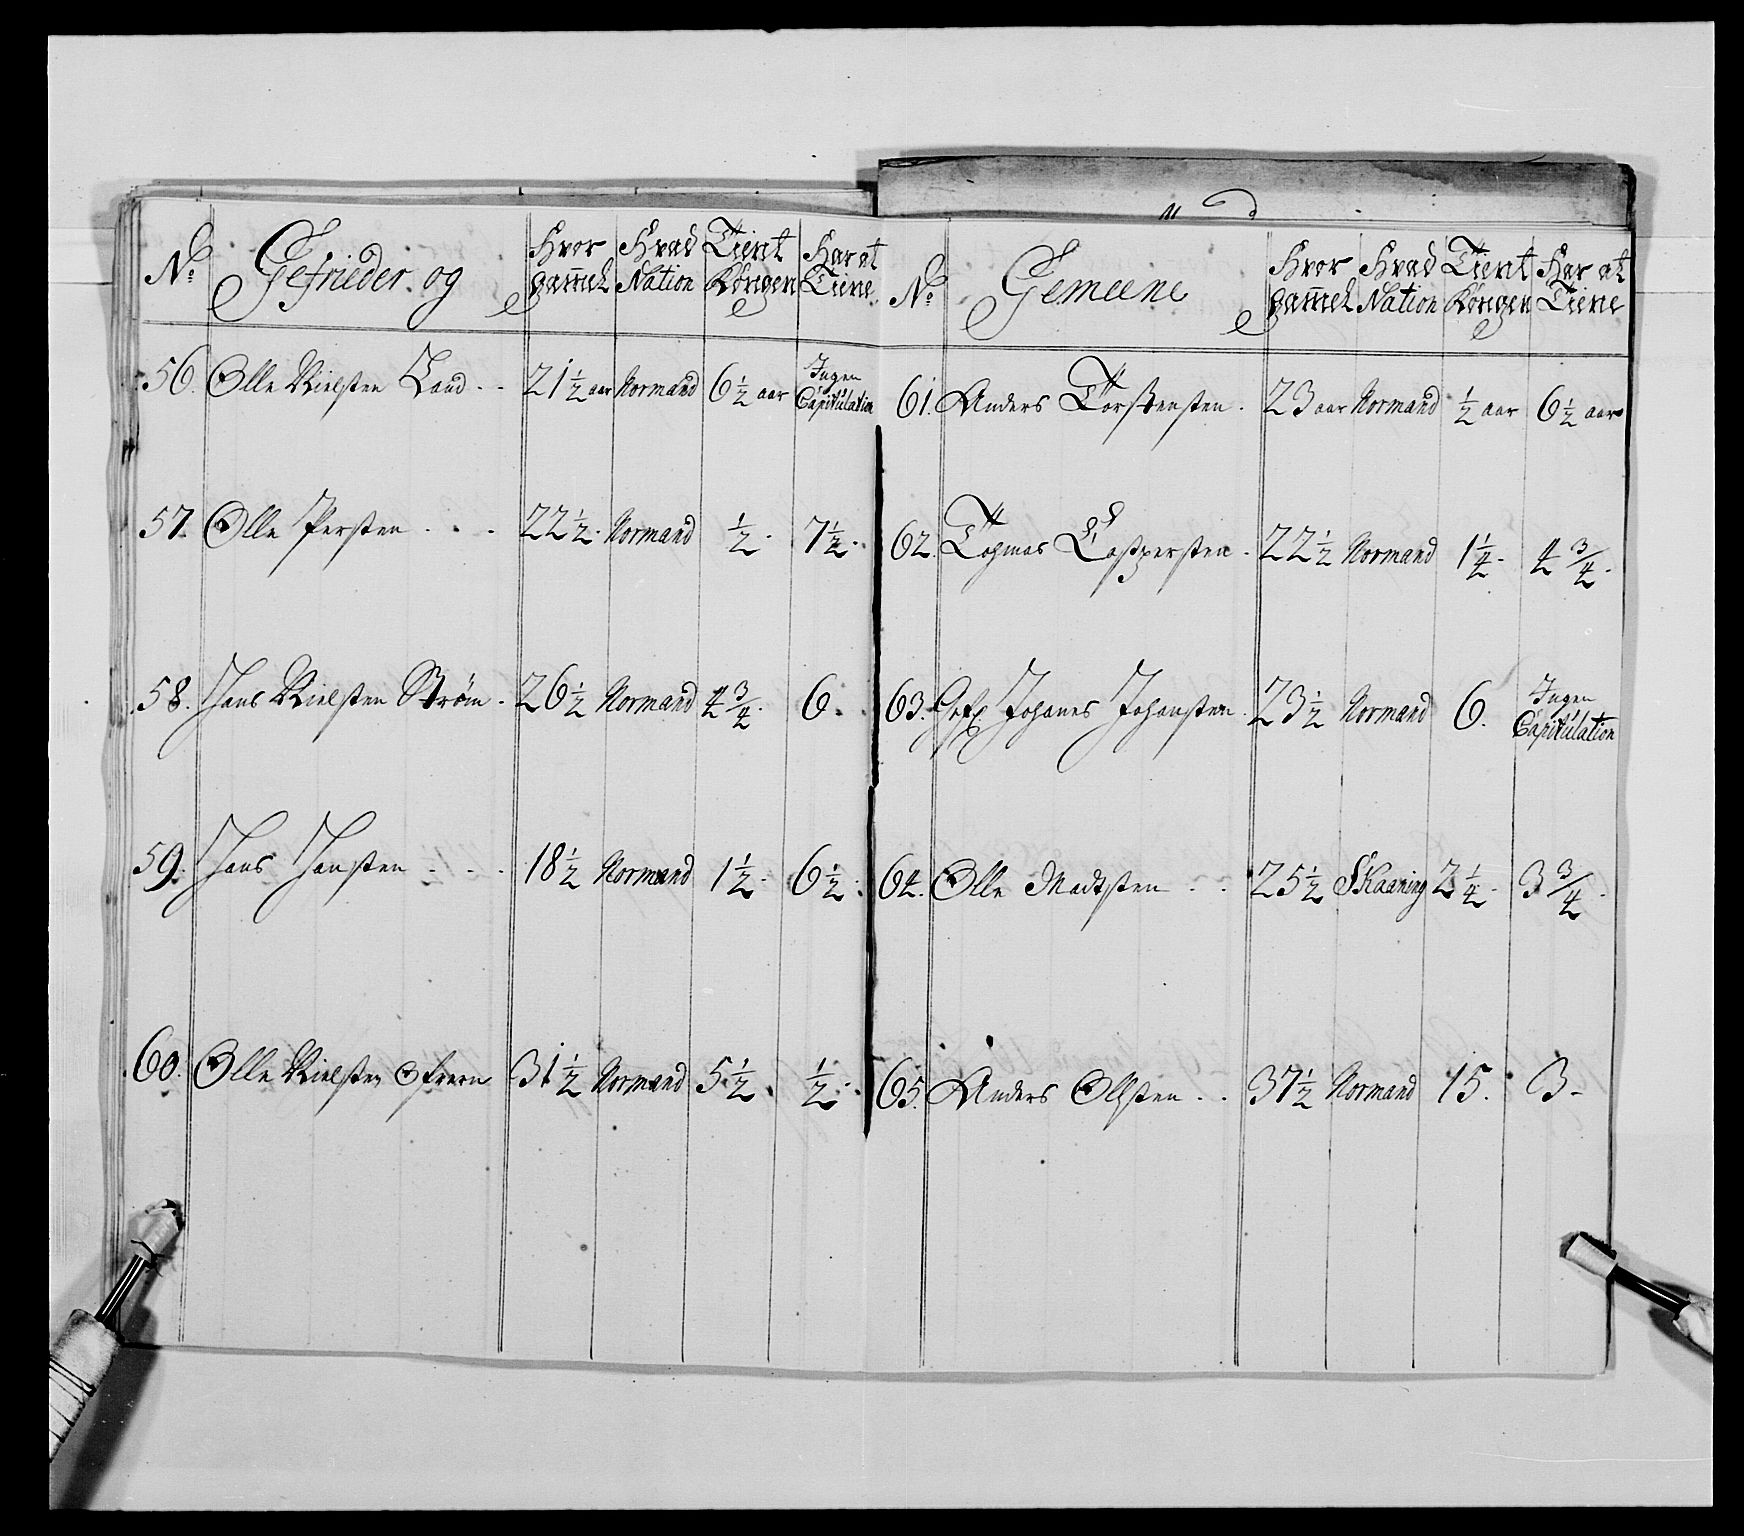 No Gefrieder og Hvor gam̄el Hvad Nation Tient Kongen Har at Tiene
56. Olle Nielsten Land 21 1/2 aar Normand 6 1/2 aar Ingen Capitulation
57. Olle Persten 22 1/2 Normand 1/2 7 1/2
58. Hans Nielsten Strøm 26 1/2 Normand 4 3/4 6
59. Hans Hansten 18 1/2 Normand 1 1/2 6 1/2
60. Olle Nielsten 31 1/2 Normand 5 1/2 1/2
No Gemeene Hvor gam̄el Hvad Nation Tient Kongen Har at Tiene
61. Anders Torstensten 23 aar Normand 1/2 aar 6 1/2 aar
62. Tohmas Caspersten 22 1/2 Normand 1 1/4 4 3/4
63. Gef: Johanes Johansten 23 1/2 Normand 6. Ingen Capitulation
64. Olle Madtsten 25 1/2 Skaaning 2 1/4 3 3/4
65. Anders Ollsten 37 1/2 Normand 15. 3